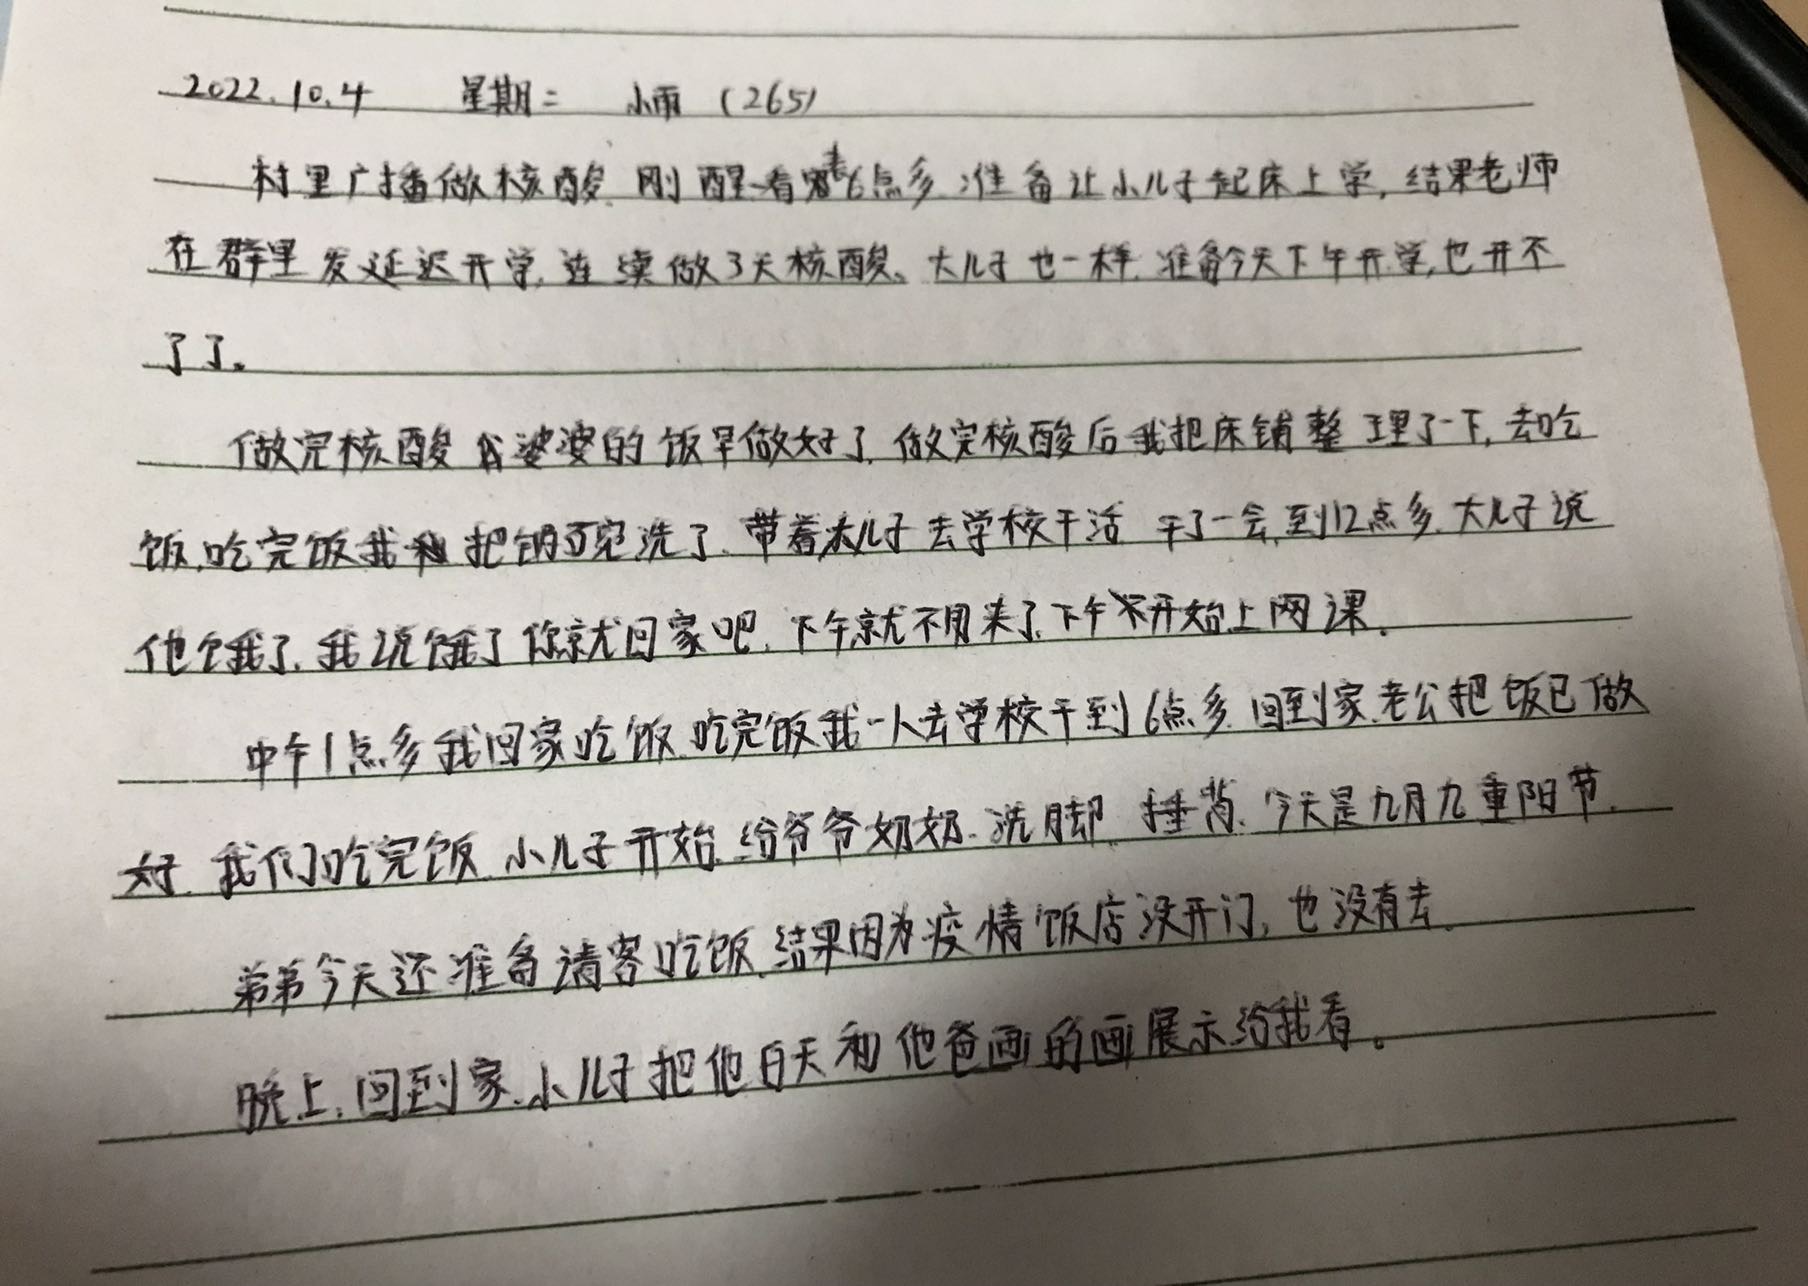 2022.10.4 星期二 小雨 (265)
村里广播做核酸.刚醒看表6点多.准备让小儿子起床上学,结果老师
在群里发延迟开学,连续做3天核酸。大儿子也一样.准备今天下午开学,也开不
了了。
做完核酸 婆婆的饭早做好了.做完核酸后我把床铺整理了一下,去吃
饭.吃完饭我把锅碗洗了.带着大儿子去学校干活 干了一会,到12点多.大儿子说
他饿了.我说饿了你就回家吧.下午就不用来了.下午不开始上网课.
中午1点多我回家吃饭.吃完饭我一人去学校干到6点多.回到家.老公把饭已做
好.我们吃完饭.小儿子开始给爷爷奶奶.洗脚.捶背.今天是九月九重阳节.
弟弟今天还准备请客吃饭.结果因为疫情饭店没开门,也没有去.
晚上.回到家.小儿子把他白天和他爸画的画展示给我看。